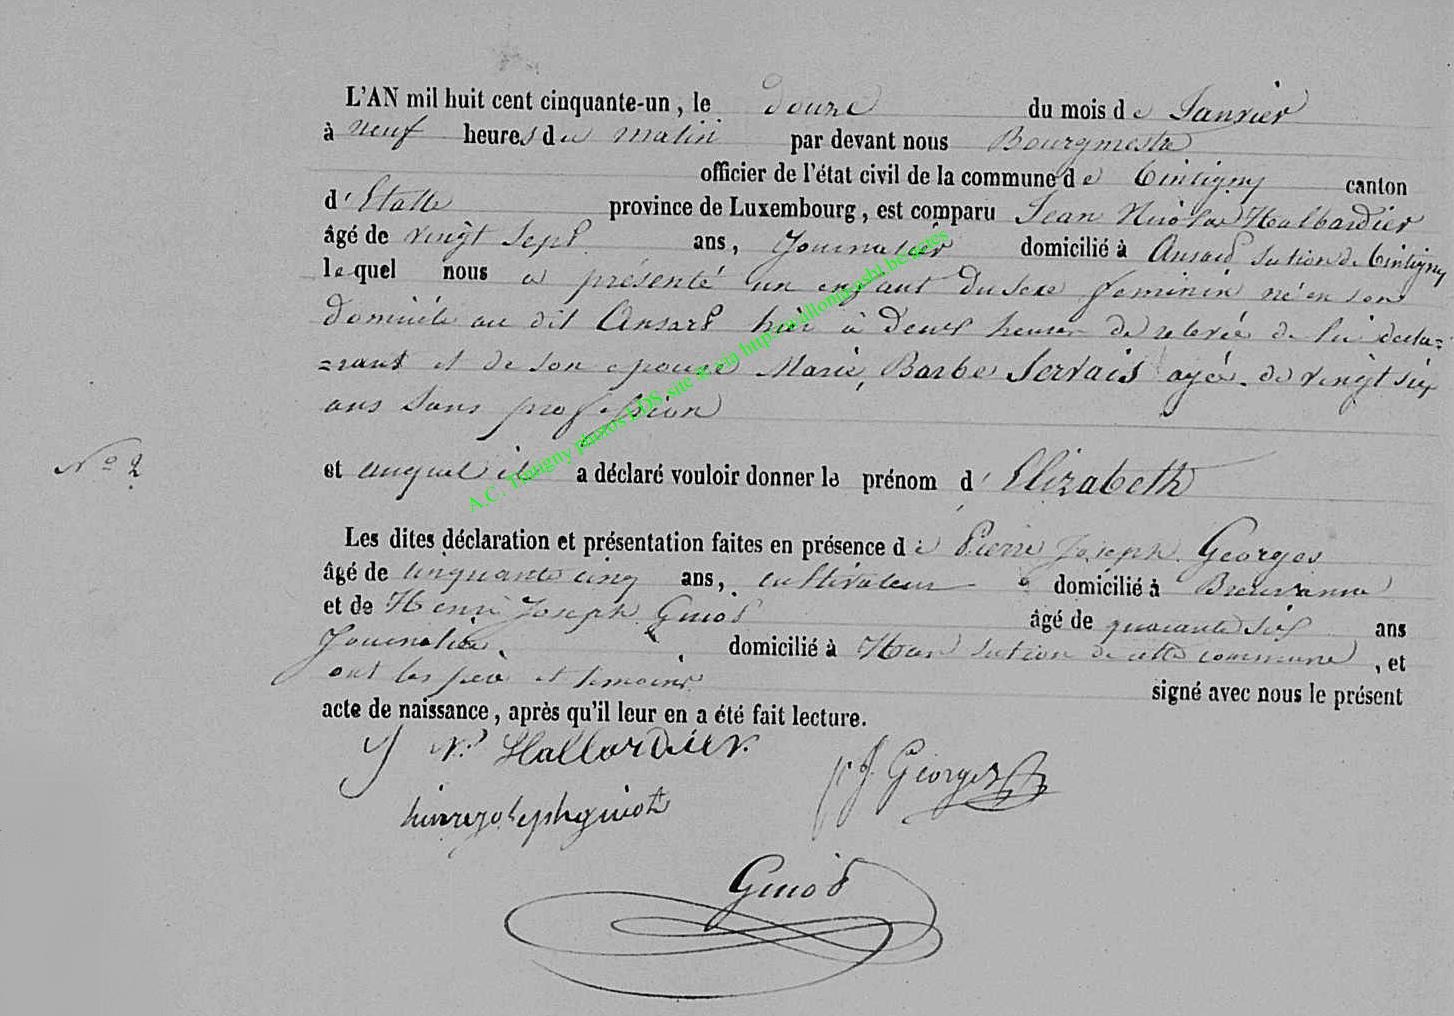 L'AN mil huit cent cinquante-un, le douze du mois de Janvier
à neuf heures du matin par devant nous Bourgmestre
officier de l'état civil de la commune de Tintigny canton
d'Etalle province de Luxembourg, est comparu Jean Nicolas Halbardier
âgé de vingt sept ans, Journalier domicilié à Ansart section de Tintigny
lequel nous a présenté un enfant du sexe feminin né en son
domicile au dit Ansart hier à deux heures de relevée de lui décla=
=rant et de son epouse Marie Barbe Servais agée de vingt six
ans sans profession
N° 2
et auquel il a déclaré vouloir donner le prénom d'Elizabeth
Les dites déclaration et présentation faites en présence de Pierre Joseph Georges
âgé de cinquante cinq ans, cultivateur domicilié à Breuvanne
et de Henri Joseph Guiot âgé de quarante six ans
Journalier, domicilié à Han section de cette commune, et
ont les père et temoins signé avec nous le présent
acte de naissance, après qu'il leur en a été fait lecture.
J N. Halbardier
p J. Georges
henri joseph guiot
Guiot
A.C. Tintigny photos LDS site et via